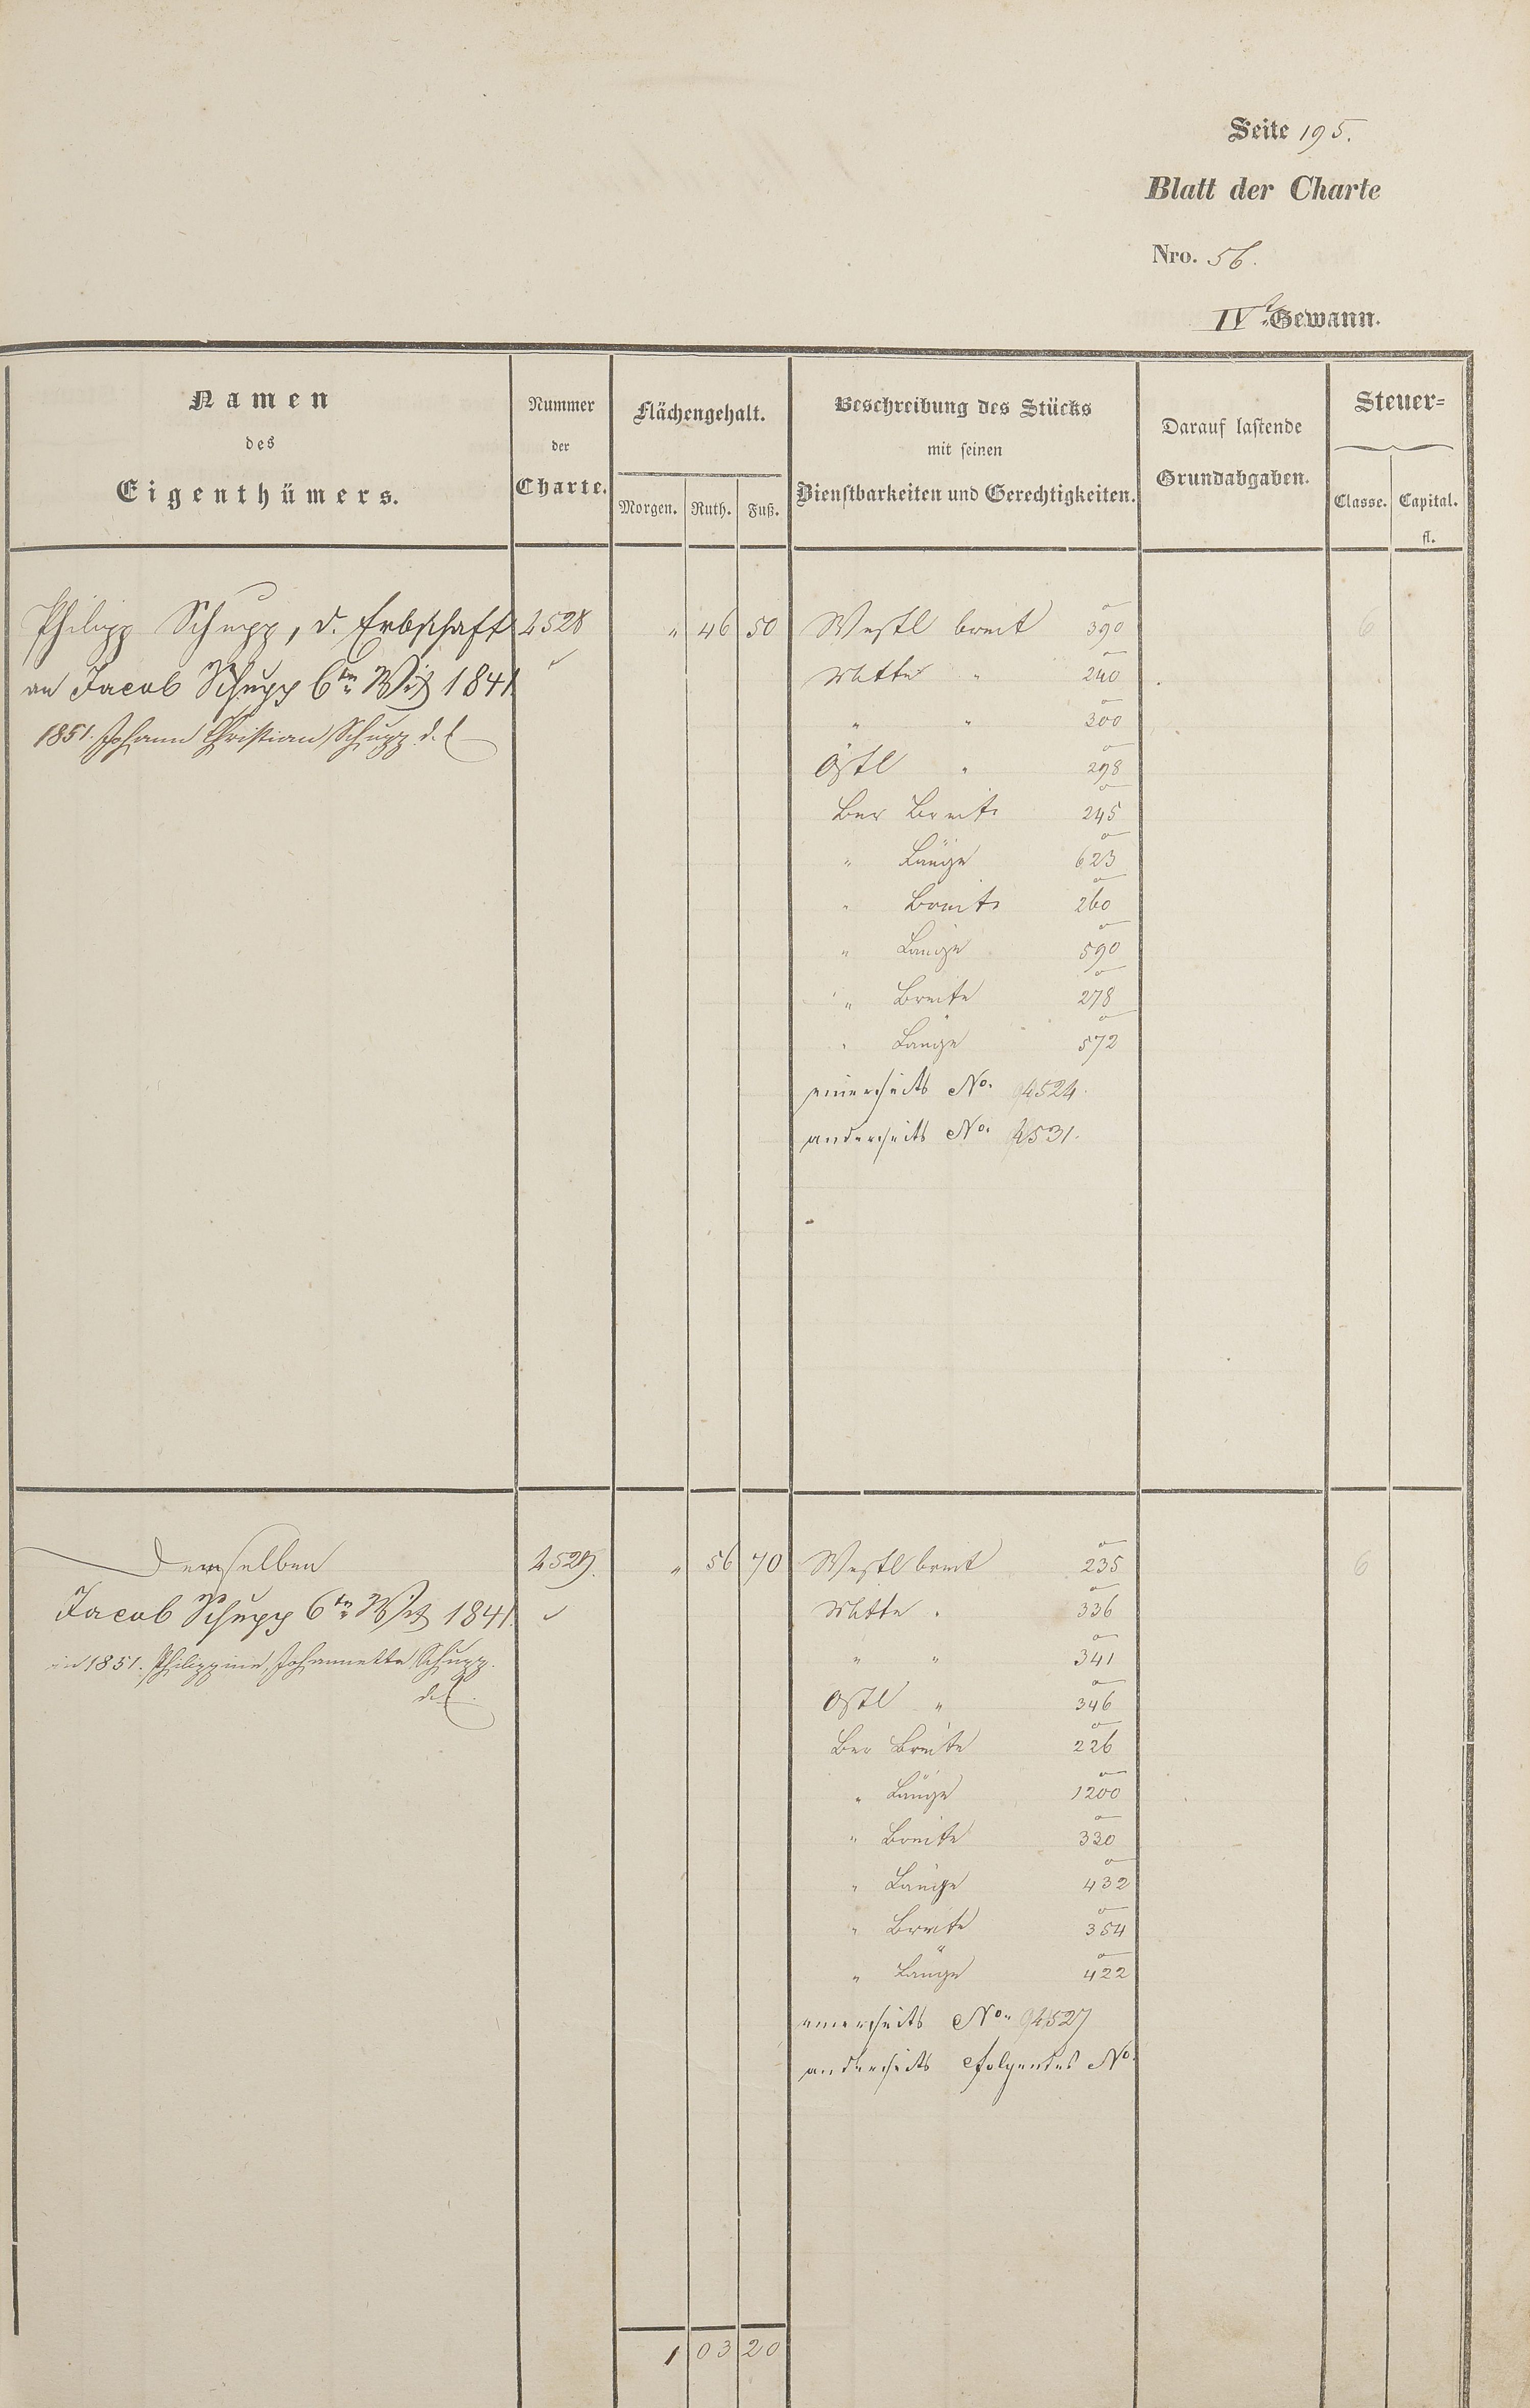 Seite 195.
Blatt der Charte
Nro. 56.
IVt Gewann.
Namen
des
Eigenthümers.
Nummer
der
Charte.
Flächengehalt.
Morgen. Ruth. Fuß.
Beschreibung des Stücks
mit seinen
Dienstbarkeiten und Gerechtigkeiten.
Darauf lastende
Grundabgaben.
Steuer=
Classe. Capital.
fl.
Philipp Schupp, d. Erbschaft 4528 " 46 50 Westl breit 390 6
an Jacob Schupp 6tn Wtb 1841 Mitte " 240
1851. Johann Christian Schupp d. E " " 300
Östl " 298
Ber Breite 245
" Länge 623
" Breite 260
" Länge 590
" Breite 278
" Länge 572
einerseits No. 4524.
anderseits No. 4531.
Demselben 4529. " 56 70 Westl breit 235 6
Jacob Schupp 6tn Wtb 1841. Mitte " 336
in 1851. Philippine Johannette Schupp. " " 341
d. E. Östl " 346
Ber Breite 226
" Länge 1200
" Breite 330
" Länge 432
" Breite 354
" Länge 422
einerseits No. 4527
anderseits folgendes No.
1 03 20